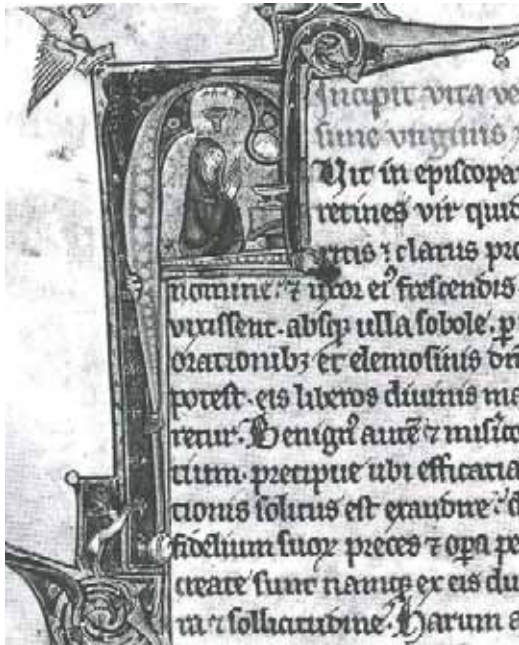 Incipit vita ve
sime virginis
Vit in episcopa
retines vir quid
ritis ⁊ clarus pro
nomine: ⁊ uxor ei᷒ frescendis
vixissent. absq; ulla sobole. p
orationibꝫ et elemosinis dn̄
potest. eis liberos divinis ma
retur. Benignꝰ autē ⁊ misc̄o
tium. precipue ubi efficatia
tionis solitus est exaudire: d
fidelium suoꝝ preces ⁊ oꝑa pe
create sunt namqꝫ ex eis du
ra ⁊ sollicitudine. Harum a